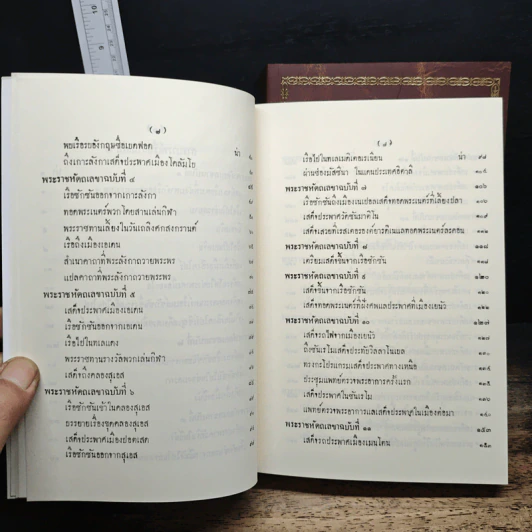 พบเรือรบอังกฤษชื่อเบดฟอด น่า
ถึงเกาะลังกาเสด็จประพาศเมืองโคลัมโบ
พระราชหัตถเลขาฉบับที่ ๔
เรือชักซันออกจากเกาะลังกา
ทอดพระเนตร์พวกโดยสานเล่นกิฬา
พระราชทานเลี้ยงในวันเถลิงศกสงกรานต์
เรือถึงเมืองเอเดน
สำเนาคาถาที่พระลังกาถวายพระพร
แปลคาถาที่พระลังกาถวายพระพร
พระราชหัตถเลขาฉบับที่ ๕
เสด็จประพาศเมืองเอเดน
เรือชักซันออกจากเอเดน
เรือไปในทเลแดง
พระราชทานรางวัลพวกเล่นกิฬา
เสด็จถึงคลองสุเอส
พระราชหัตถเลขาฉบับที่ ๖
เรือชักซันเข้าในคลองสุเอส
บรรยายเรื่องขุดคลองสุเอส
เสด็จประพาศเมืองปอดเสด
เรือชักซันออกจากสุเอส
เรือไปในทเลเมดิเตอเรเนียน น่า ๙๘
ผ่านช่องมัสซินา ในแดนประเทศอิตาลี
พระราชหัตถเลขาฉบับที่ ๗ ๑๐๖
เรือชักซันถึงเมืองเนเปอลเสด็จทอดพระเนตร์ที่เลี้ยงปลา
เสด็จประพาศวัดซันมาติโน
เสด็จเสวยที่เรสเตอรองค์อาวติเนแลทอดพระเนตร์ลคอน
พระราชหัตถเลขาฉบับที่ ๘ ๑๑๘
เตรียมเสด็จขึ้นจากเรือชักซัน ๑๑๘
พระราชหัตถเลขาฉบับที่ ๙ ๑๒๐
เสด็จขึ้นจากเรือชักซัน ๑๒๐
เสด็จทอดพระเนตร์ที่ฝังศพแลประพาศที่เมืองเยนัว ๑๒๒
พระราชหัตถเลขาฉบับที่ ๑๐ ๑๒๗
เสด็จรถไฟจากเมืองเยนัว
ถึงซันเรโมเสด็จประทับวิลลาโนเบล ๑๓๐
ทรงกะโปรแกรมเสด็จประพาศทางเหนือ
ประชุมแพทย์ตรวจพระอาการครั้งแรก ๑๓๕
เสด็จประพาศในซันเรโม
แพทย์ตรวจพระอาการแลเสด็จประพาศในเมืองต่อมา ๑๔๐
พระราชหัตถเลขาฉบับที่ ๑๑ ๑๕๓
เสด็จรถประพาศเมืองเมนโตน ๑๕๓